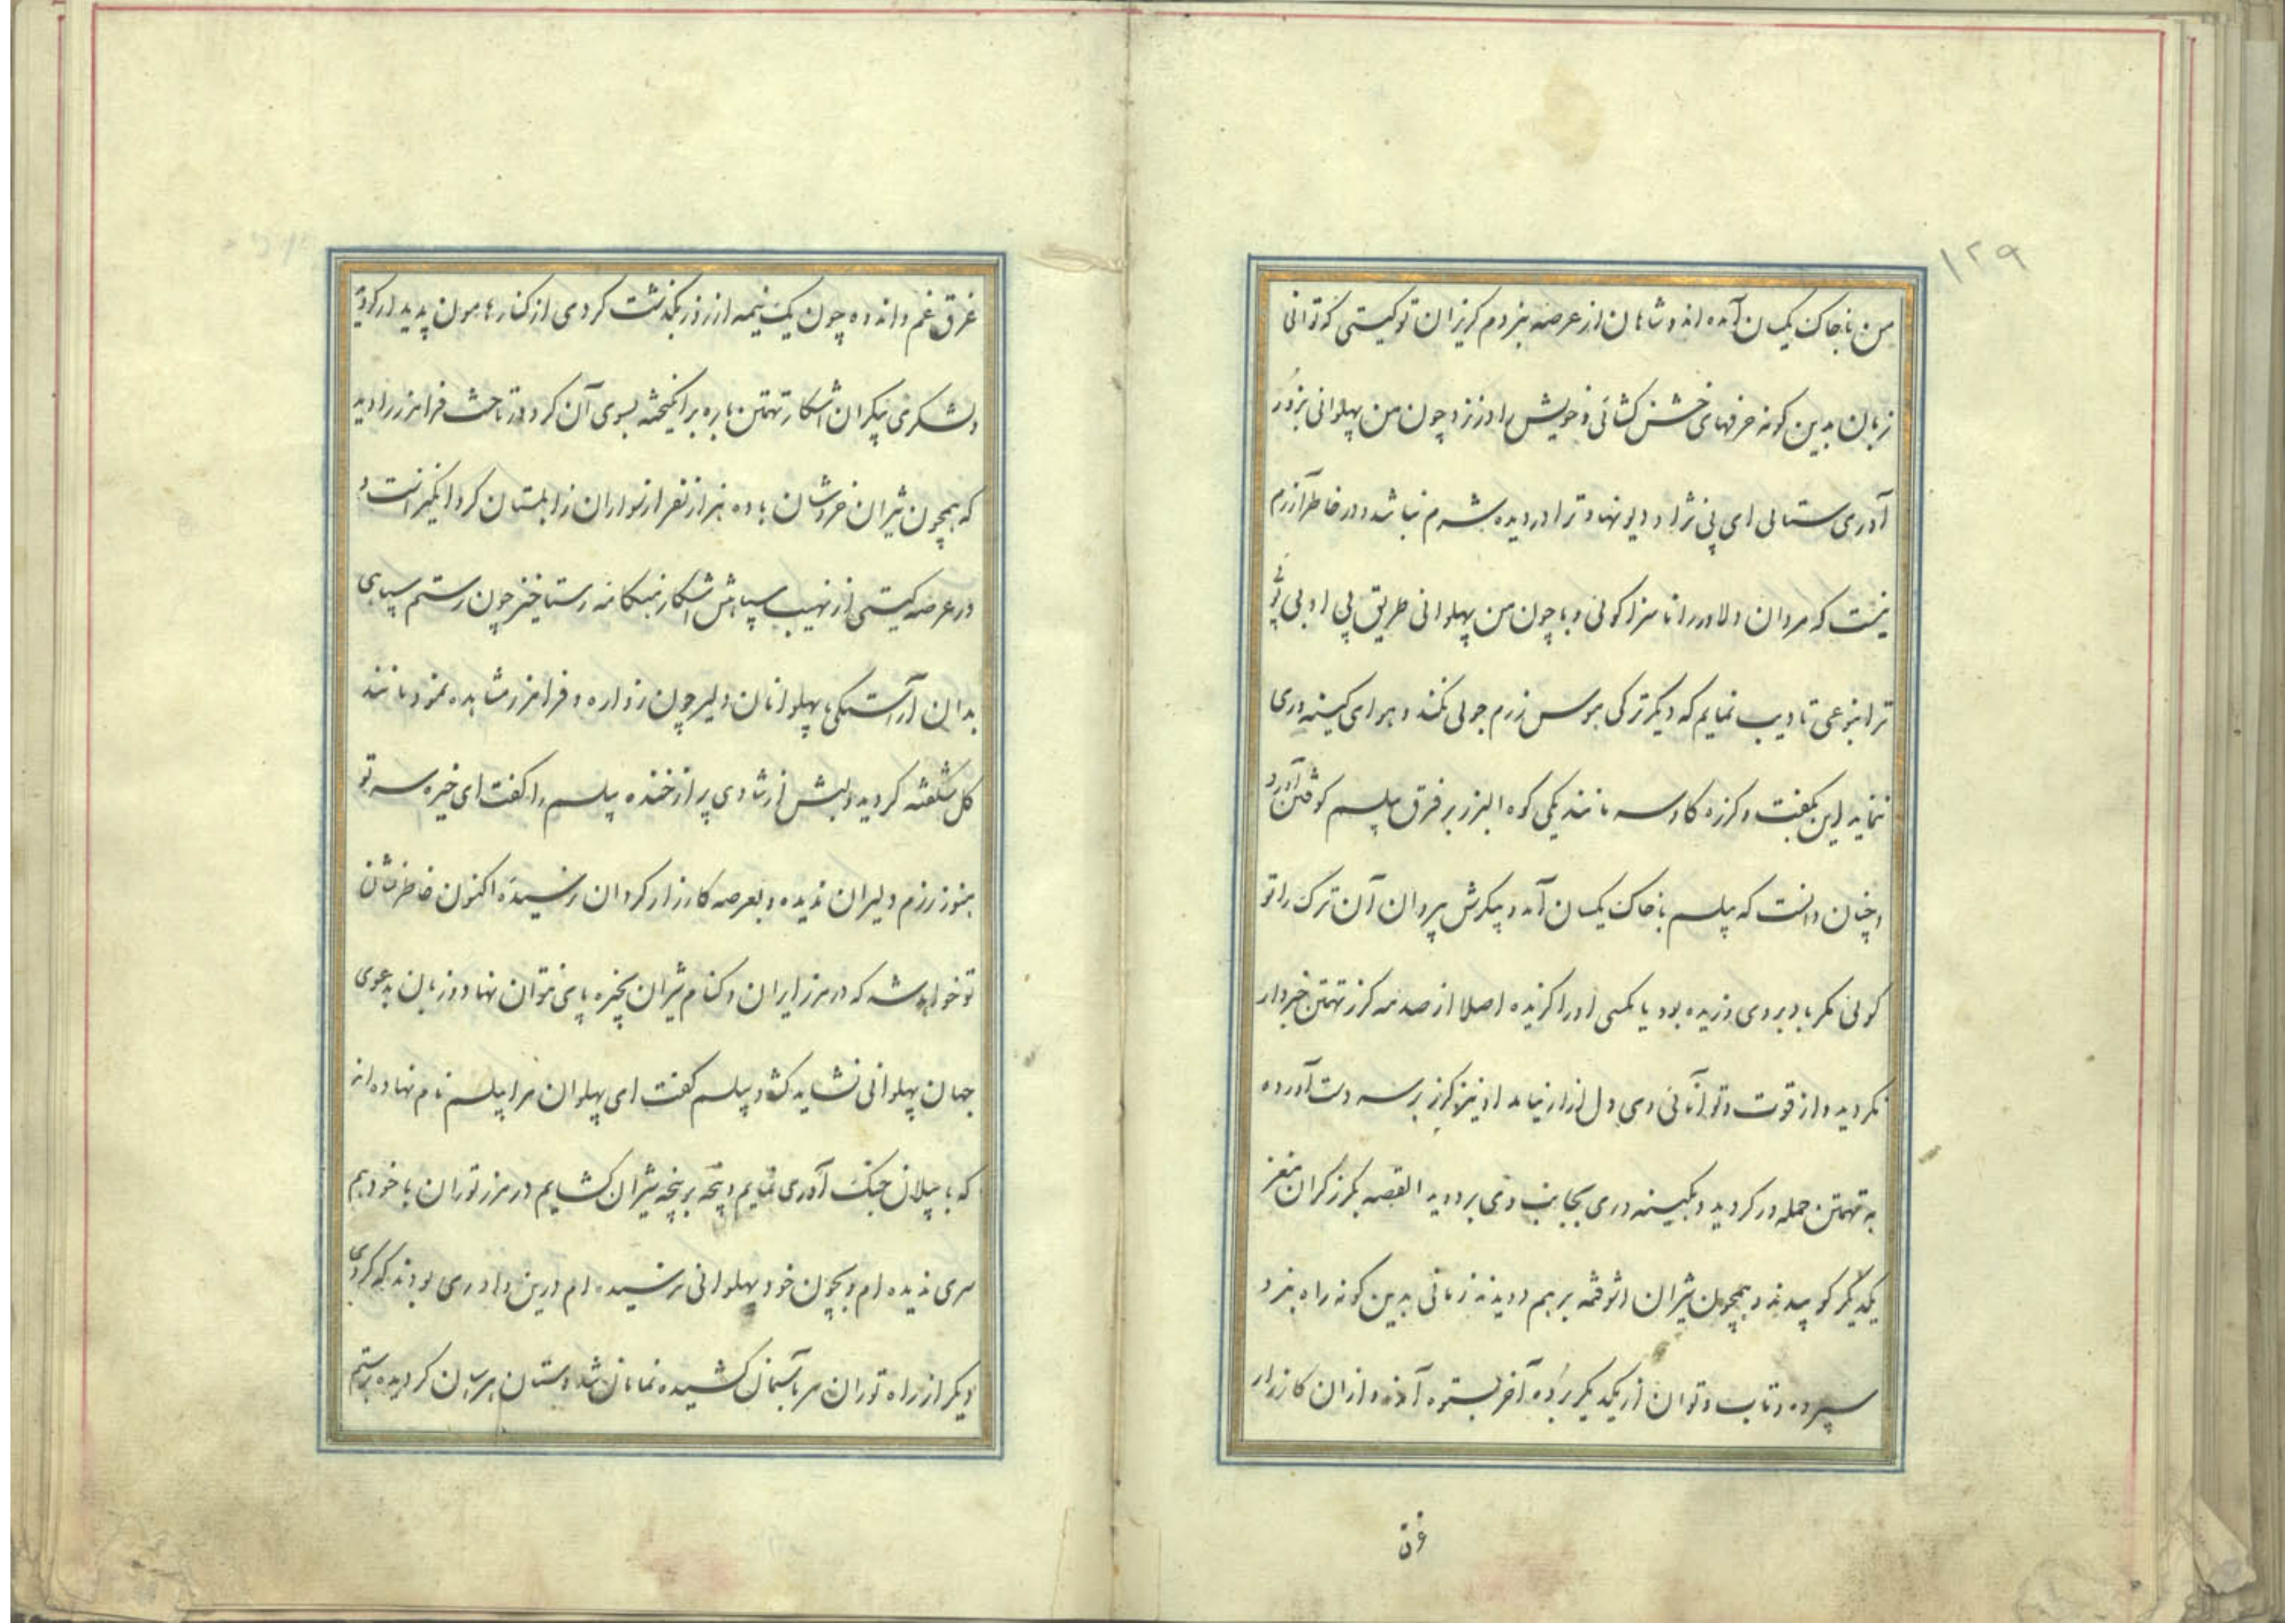 ۱۲۹
من با خاک یکسان آمده اند و شاهان از عرصه نبردم کریزان تو کیستی که توانی
زبان بدین کونه حرفهای خشن کشائی و خویش را در نزد چون من پهلوانی بزور
آوری ستائی ای بی نژاد و دیو نهاد ترا در دیده شرم نباشد و در خاطر آزرم
نیست که مردان دلاور را ناسزا کوئی و با چون من پهلوانی طریق بی ادبی پوئی
ترا بنوعی تادیب نمایم که دیکر ترکی هوس رزم جوئی نکند و هوای کینه وری
ننماید این بکفت و کرزه کاوسر مانند یکی کوه البرز بر فرق پیلسم کوفتن آورد
و چنان دانست که پیلسم با خاک یکسان آمد و پیکرش پردان آن ترک را تو
کوئی مکر باد بروی وزیده بود یا مکسی او را کزیده اصلا از صدمه کرز تهمتن خبردار
نکردید و از قوت و توانائی وی دل ازار نیامد او نیز کرز بر سر دست آورده
به تهمتن حمله ور کردید و بکینه وری بجانب وی بر دوید القصه بکرز کران مغز
یکدیکر کوبیدند و همچون شیران اشوفته برهم دویدند زمانی بدین کونه راه نبرد
سپرده و تاب و توان از یکدیکر برده آخر بستوه آمده و از ان کارزار
غرق
غرق غم و اندوه چون یک نیمه از روز بکذشت کردی از کنار هامون پدید ار کردید
و لشکری بیکران اشکار تهمتن باره برانکیخته بسوی آن کرد در تاخت فرامرز را دید
که همچون شیران خروشان با ده هزار نفر از سواران زابلستان کرد انکیز است و
در عرصه کیتی از نهیب سپاهش اشکار هنکامه رستاخیز چون رستم سپاهی
بدان آراستکی با پهلوانان دلیر چون زواره و فرامرز مشاهده نمود مانند
کل شکفته کردید و لبش از شادی پر از خنده پیلسم را کفت ای خیره سر تو
هنوز رزم دلیران ندیده و بعرصه کارزار کردان نرسیده اکنون خاطرنشان
تو خواهد شد که در مرز ایران و کنام شیران بخیره پای نتوان نهاد و زبان بدعوی
جهان پهلوانی نشاید کشود پیلسم کفت ای پهلوان مرا پیلسم نام نهاده اند
که با پیلان جنک آوری نمایم و پنجه بر پنجه شیران کشایم در مرز توران با خود هم
سری ندیده ام و بچون خود پهلوانی نرسیده ام درین داوری بودند که کردی
دیکر از راه توران سر بآسمان کشیده نمایان شد دستان هراسان کردیده برستم